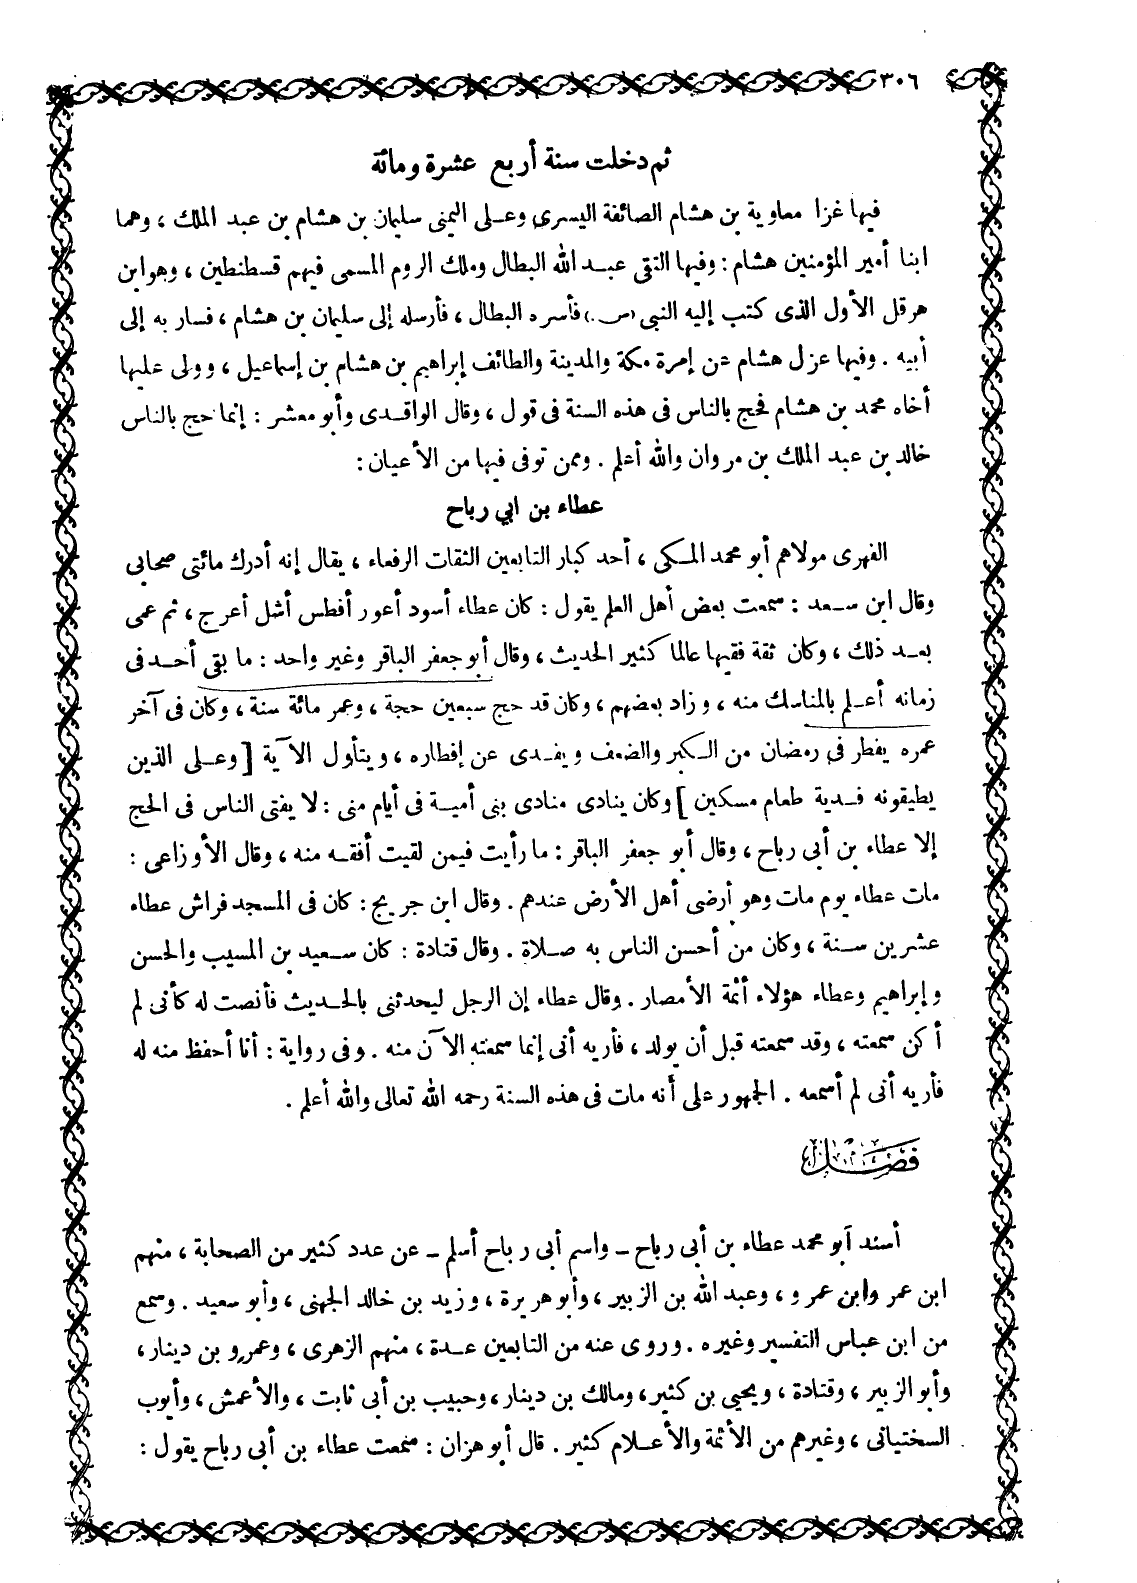 ٣٠٦
ثم دخلت سنة أربع عشرة ومائة
فيها غزا معاوية بن هشام الصائفة اليسرى وعلى اليمنى سليمان بن هشام بن عبد الملك ، وهما
ابنا أمير المؤمنين هشام : وفيها التقى عبد الله البطال وملك الروم المسمى فيهم قسطنطين ، وهو ابن
هرقل الأول الذى كتب إليه النبى (س.) فأسره البطال ، فأرسله إلى سليمان بن هشام ، فسار به إلى
أبيه . وفيها عزل هشام عن إمرة مكة والمدينة والطائف إبراهيم بن هشام بن إسماعيل ، وولى عليها
أخاه محمد بن هشام فحج بالناس فى هذه السنة فى قول ، وقال الواقدى وأبو معشر : إنما حج بالناس
خالد بن عبد الملك بن مروان والله أعلم . وممن توفى فيها من الأعيان :
عطاء بن ابي رباح
الفهرى مولاهم أبو محمد المكى ، أحد كبار التابعين الثقات الرفعاء ، يقال إنه أدرك مائتى صحابى
وقال ابن سعد : سمعت بعض أهل العلم يقول : كان عطاء أسود أعور أفطس أشل أعرج ، ثم عمى
بعد ذلك ، وكان ثقة فقيها عالما كثير الحديث ، وقال أبو جعفر الباقر وغير واحد : ما بقى أحد فى
زمانه أعلم بالمناسك منه ، وزاد بعضهم ، وكان قد حج سبعين حجة ، وعمر مائة سنة ، وكان فى آخر
عمره يفطر فى رمضان من الكبر والضعف ويفدى عن إفطاره ، ويتأول الآية [ وعلى الذين
يطيقونه فدية طعام مسكين ] وكان ينادى منادى بنى أمية فى أيام منى : لا يفتى الناس فى الحج
إلا عطاء بن أبى رباح ، وقال أبو جعفر الباقر : ما رأيت فيمن لقيت أفقه منه ، وقال الأوزاعى :
مات عطاء يوم مات وهو أرضى أهل الأرض عندهم . وقال ابن جريج : كان فى المسجد فراش عطاء
عشرين سنة ، وكان من أحسن الناس به صلاة . وقال قتادة : كان سعيد بن المسيب والحسن
وإبراهيم وعطاء هؤلاء أئمة الأمصار . وقال عطاء إن الرجل ليحدثنى بالحديث فأنصت له كأنى لم
أكن سمعته ، وقد سمعته قبل أن يولد ، فأريه أنى إنما سمعته الآن منه . وفى رواية : أنا أحفظ منه له
فأريه أنى لم أسمعه . الجمهور على أنه مات فى هذه السنة رحمه الله تعالى والله أعلم .
فصل
أسند أبو محمد عطاء بن أبى رباح - واسم أبى رباح أسلم - عن عدد كثير من الصحابة ، منهم
ابن عمر وابن عمرو ، وعبد الله بن الزبير ، وأبو هريرة ، وزيد بن خالد الجهنى ، وأبو سعيد . وسمع
من ابن عباس التفسير وغيره . وروى عنه من التابعين عدة ، منهم الزهرى ، وعمرو بن دينار ،
وأبو الزبير ، وقتادة ، ويحيى بن كثير ، ومالك بن دينار ، وحبيب بن أبى ثابت ، والأعمش ، وأيوب
السختيانى ، وغيرهم من الأئمة والأعلام كثير . قال أبو هزان : سمعت عطاء بن أبى رباح يقول :